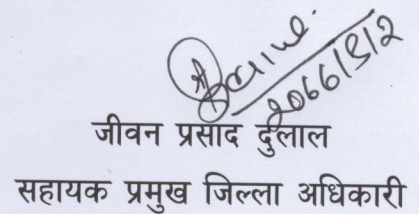 २०६६।९।२
जीवन प्रसाद दुलाल
सहायक प्रमुख जिल्ला अधिकारी